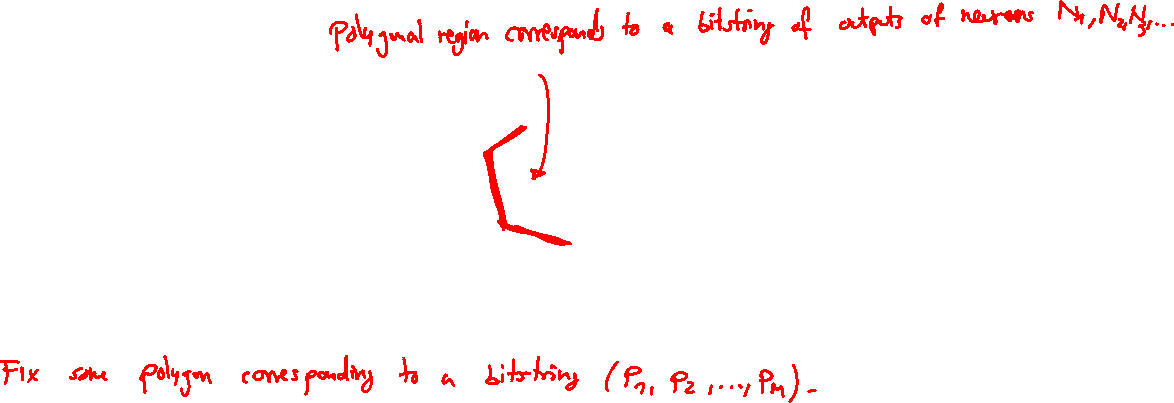 Polygonal region corresponds to a bitstring of outputs of neurons N₁, N₂, N₃, ...
Fix some polygon corresponding to a bitstring (P₁, P₂, ..., Pₘ).